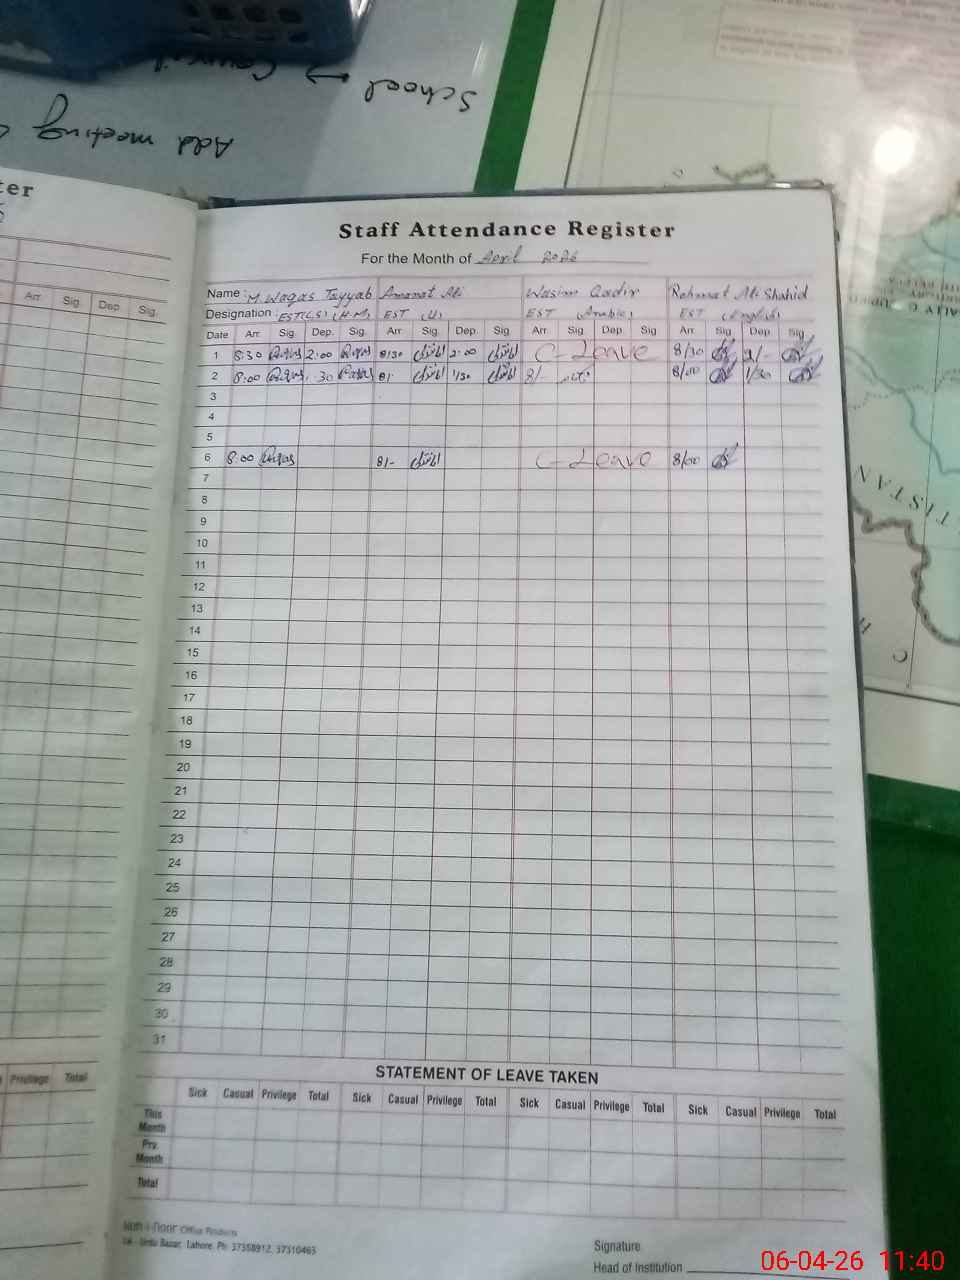 School → Council
Add meeting
ter
Arr. Sig. Dep. Sig.
Staff Attendance Register
For the Month of April 2026
Name : M. Waqas Tayyab Amanat Ali Wasim Qadir Rehmat Ali Shahid
Designation : EST(C.S) (H.M) EST (U) EST (Arabic) EST (English)
Date Arr. Sig. Dep. Sig. Arr. Sig. Dep. Sig. Arr. Sig. Dep. Sig Arr. Sig. Dep. Sig.
1 8:30 Waqas 2:00 Waqas 8/30 2:00 C-Leave 8/30 2/-
2 8:00 Waqas 1:30 Waqas 8/- 1/30 8/- 8/00 1/30
3
4
5
6 8:00 Waqas 8/- C-Leave 8/00
7
8
9
10
11
12
13
14
15
16
17
18
19
20
21
22
23
24
25
26
27
28
29
30
31
Privilege Total
STATEMENT OF LEAVE TAKEN
Sick Casual Privilege Total Sick Casual Privilege Total Sick Casual Privilege Total Sick Casual Privilege Total
This Month
Prv. Month
Total
Office Products
Urdu Bazar, Lahore. Ph: 37358912, 37310463
Signature
Head of Institution
TISTAN
06-04-26 11:40